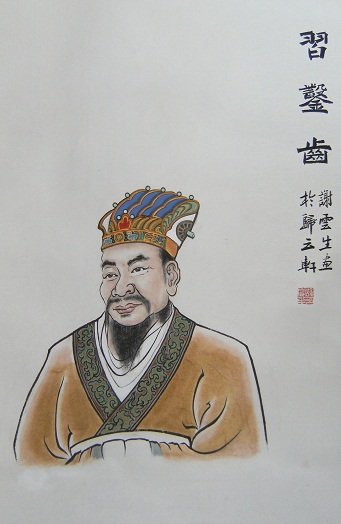 習鑿齒
謝雲生畫
於歸云軒